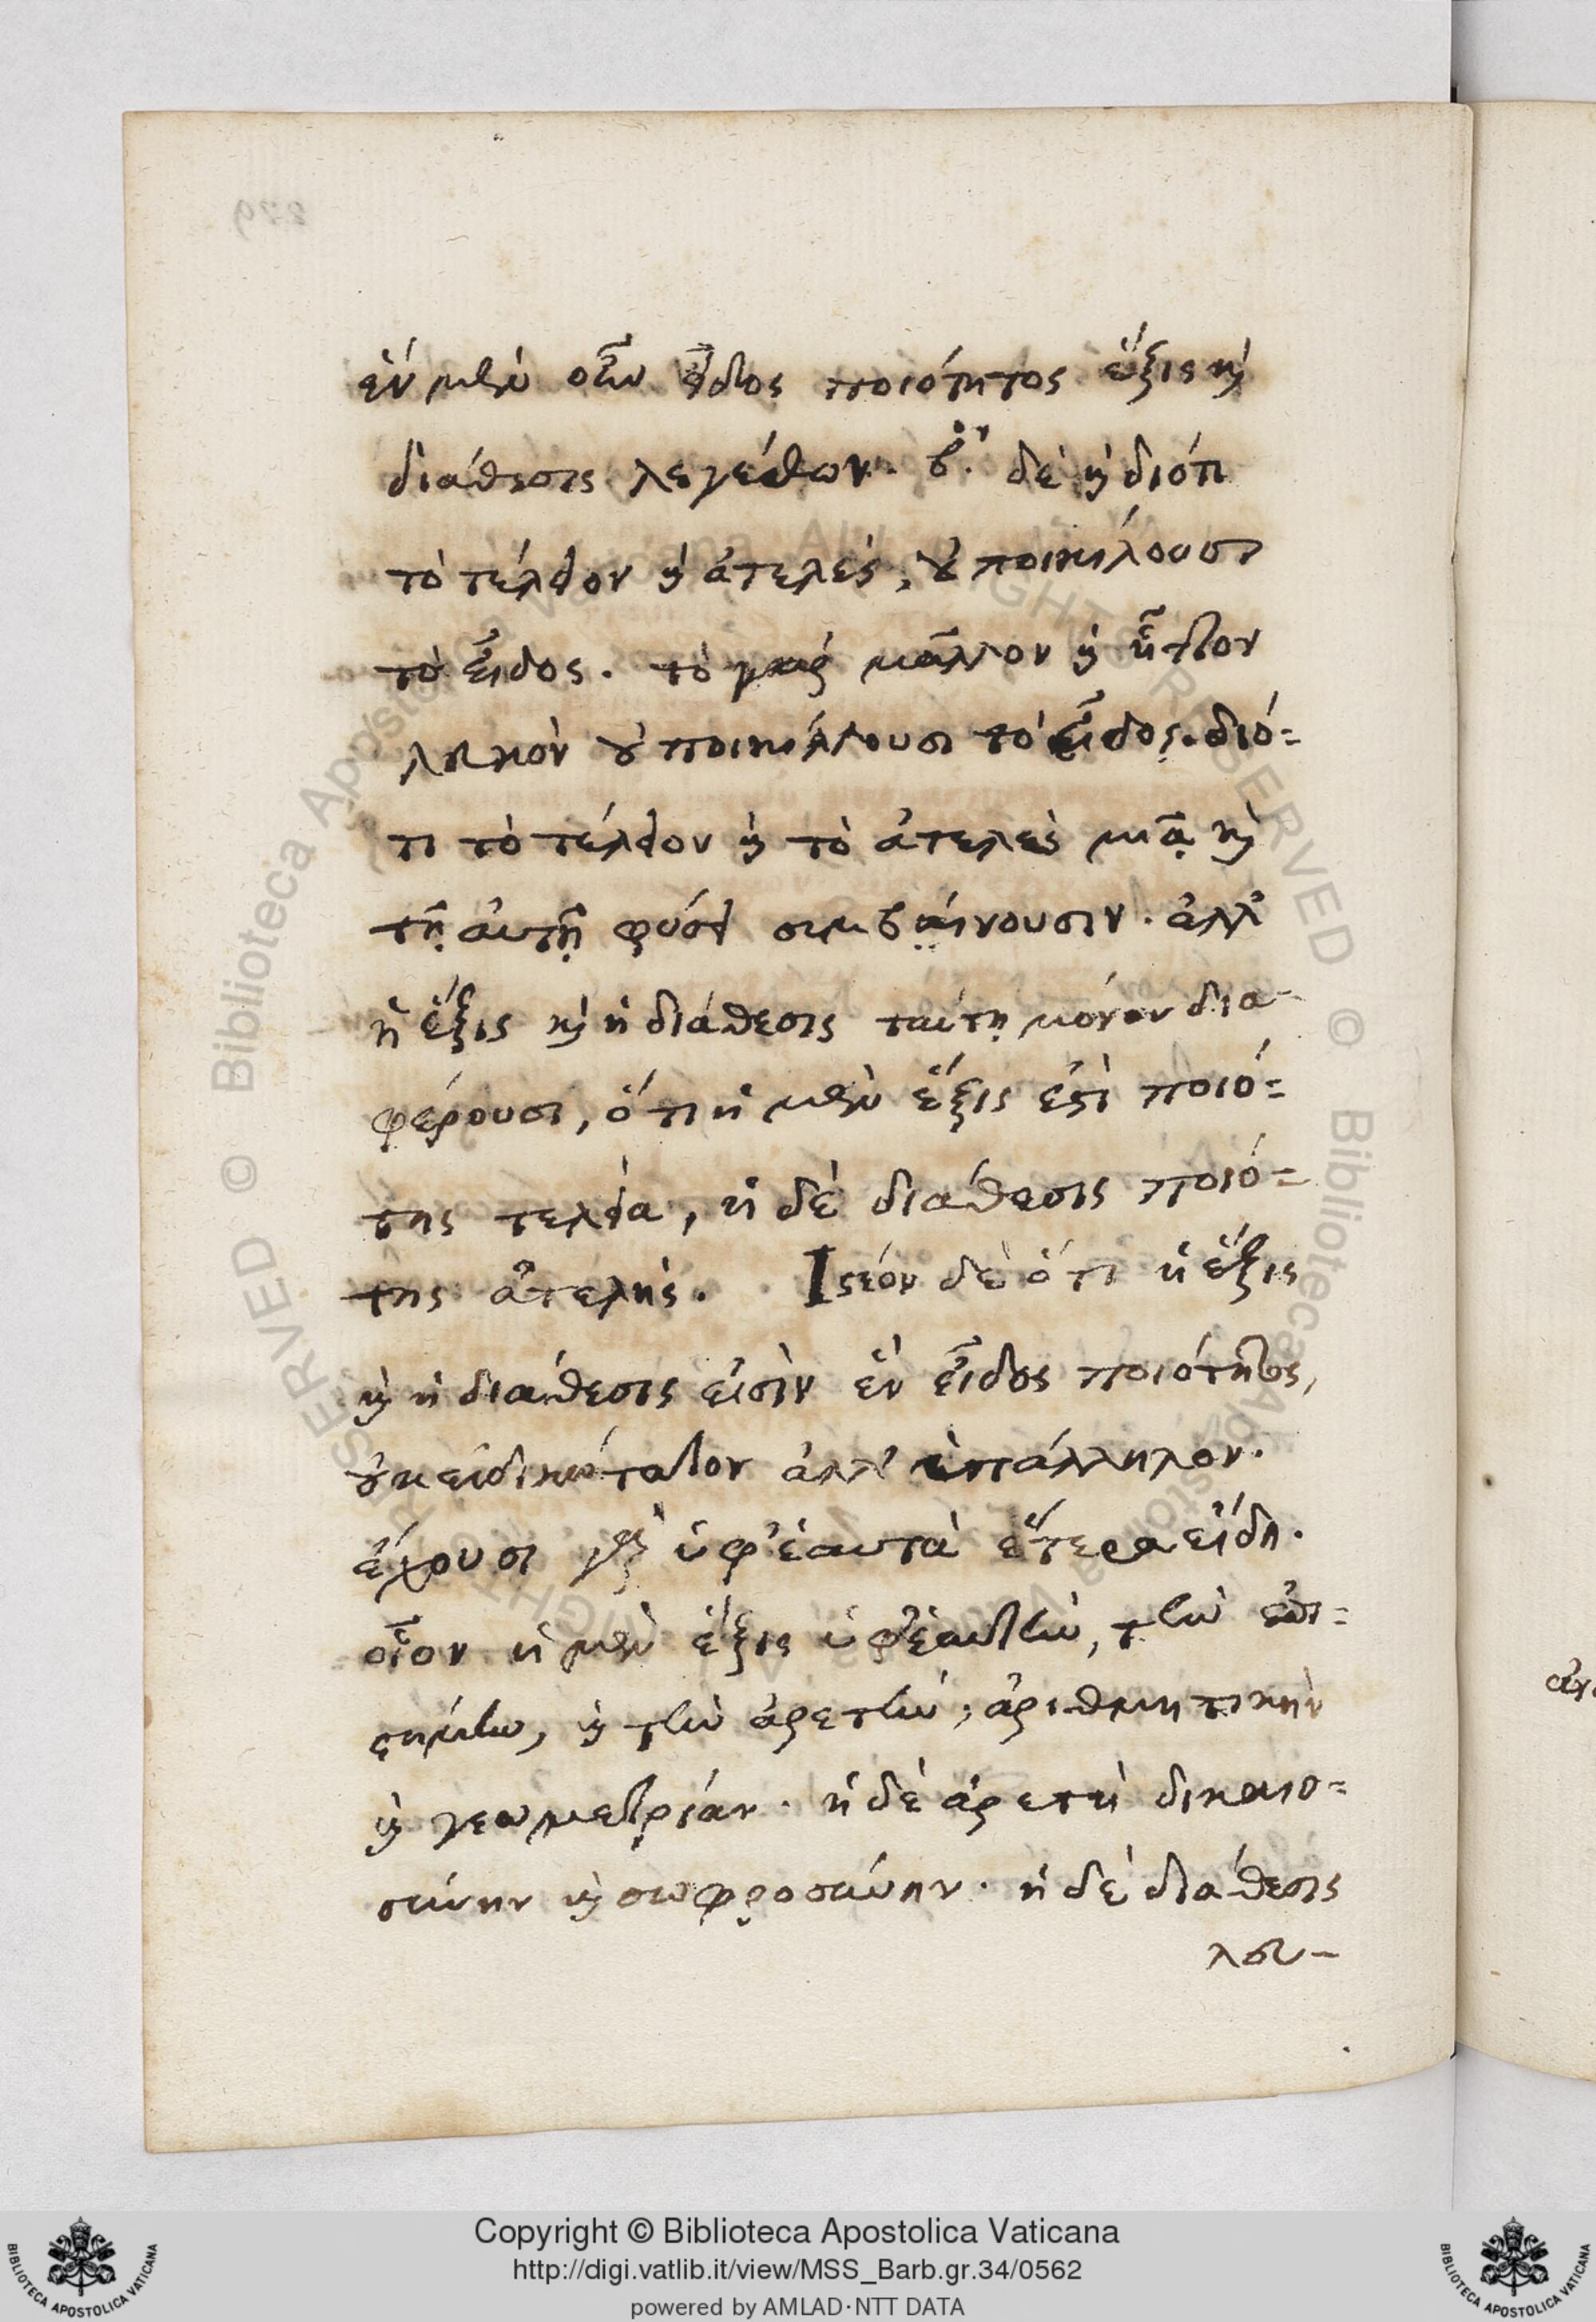 ἓν μὲν οὖν εἶδος ποιότητος ἕξις καὶ
διάθεσις λεγέσθων. βʹ. δὲ καὶ διότι
τὸ τέλειον καὶ ἀτελὲς, οὐ ποικίλουσι
τὸ εἶδος. τὸ γὰρ μᾶλλον καὶ ἧττον
λευκὸν οὐ ποικίλλουσι τὸ εἶδος. διό-
τι τὸ τέλειον καὶ τὸ ἀτελὲς μιᾷ καὶ
τῇ αὐτῇ φύσει συμβαίνουσιν. ἀλλ'
ἡ ἕξις καὶ ἡ διάθεσις ταύτῃ μόνον δια-
φέρουσι, ὅτι ἡ μὲν ἕξις ἐστὶ ποιό-
της τελεία, ἡ δὲ διάθεσις ποιό-
της ἀτελής. Ἰστέον δὲ ὅτι ἡ ἕξις
καὶ ἡ διάθεσις εἰσὶν ἓν εἶδος ποιότητος,
οὐκ εἰδικώτατον ἀλλ' ὑπάλληλον.
ἔχουσι γὰρ ὑφ' ἑαυτὰ ἕτερα εἴδη.
οἷον ἡ μὲν ἕξις ὑφ' ἑαυτὴν, τὴν ἐπι-
στήμην, καὶ τὴν ἀρετὴν, ἀριθμητικὴν
καὶ γεωμετρίαν. ἡ δὲ ἀρετὴ δικαιο-
σύνην καὶ σωφροσύνην. ἡ δὲ διάθεσις
Copyright © Biblioteca Apostolica Vaticana
http://digi.vatlib.it/view/MSS_Barb.gr.34/0562
powered by AMLAD·NTT DATA